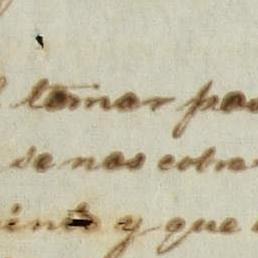 tomar pa
se nos cobra
y que